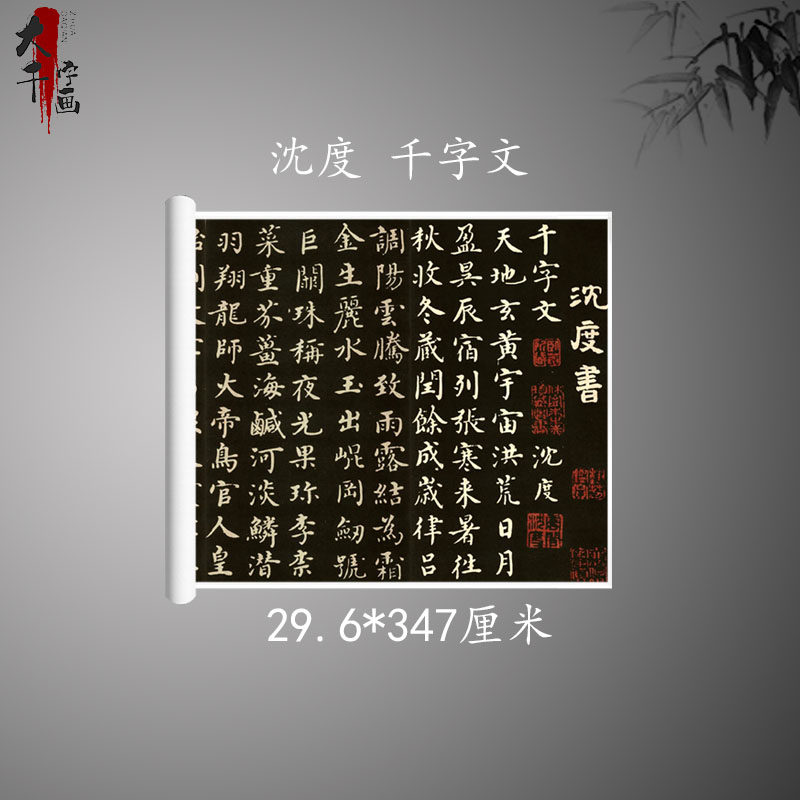 大千字画
沈度 千字文
沈度書
千字文 沈度
天地玄黄宇宙洪荒日月
盈昃辰宿列張寒来暑往
秋收冬蔵閏餘成歲律呂
調陽雲騰致雨露結為霜
金生麗水玉出崐岡劒號
巨闕珠稱夜光果珎李柰
菜重芥薑海鹹河淡鱗潜
羽翔龍師火帝鳥官人皇
29.6*347厘米